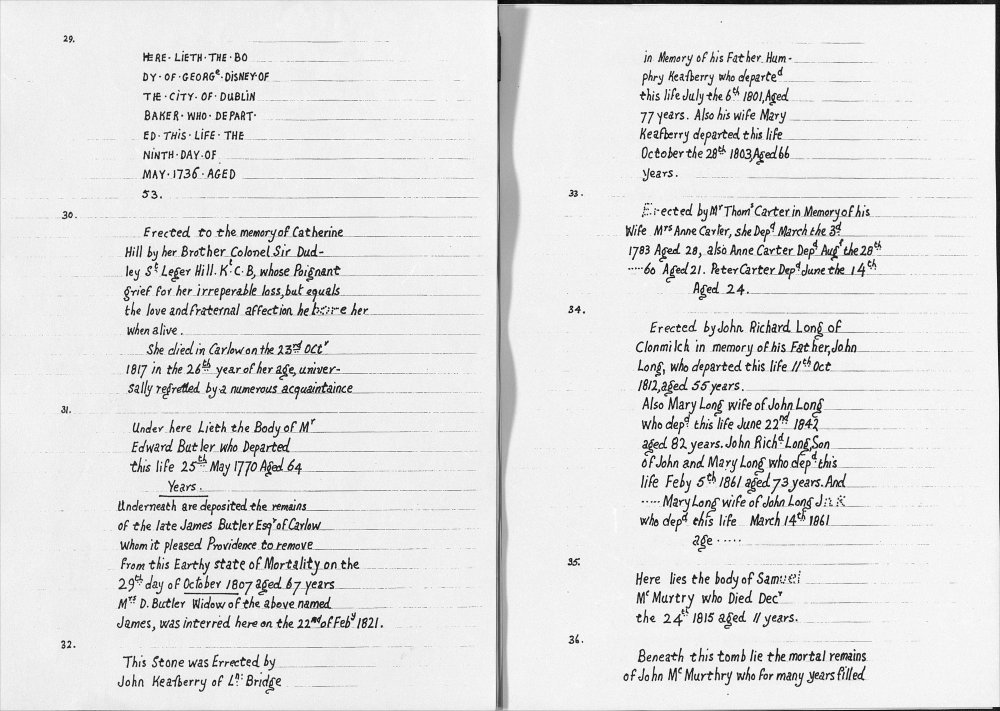 29.
HERE· LIETH· THE· BO
DY· OF· GEORGᵉ· DISNEY·OF
THE· CITY· OF· DUBLIN
BAKER· WHO· DEPART·
ED· THIS· LIFE· THE
NINTH· DAY· OF
MAY· 1736· AGED
53.
30.
Erected to the memory of Catherine
Hill by her Brother Colonel Sir Dud-
ley Sᵗ Leger Hill. Kᵗ·C·B, whose Poignant
grief for her irreperable loss, but equals
the love and fraternal affection he bore her
when alive.
She died in Carlow on the 23ʳᵈ Octʳ
1817 in the 26ᵗʰ year of her age, univer-
sally regretted by a numerous acquaintaince
31.
Under here Lieth the Body of Mʳ
Edward Butler who Departed
this life 25ᵗʰ May 1770 Aged 64
Years.
Underneath are deposited the remains
of the late James Butler Esqʳ of Carlow
Whom it pleased Providence to remove
from this Earthy state of Mortality on the
29ᵗʰ day of October 1807 aged 67 years
Mʳˢ D. Butler Widow of the above named
James, was interred here on the 22ⁿᵈ of Febʸ 1821.
32.
This Stone was Errected by
John Keafberry of Lⁿ: Bridge
in Memory of his Father Hum-
phry Keafberry who departeᵈ
this life July the 6ᵗʰ 1801, Aged
77 years. Also his wife Mary
Keafberry departed this life
October the 28ᵗʰ 1803, Aged 66
Years.
33.
Erected by Mʳ Thomˢ Carter in Memory of his
Wife Mʳˢ Anne Carter, she Depᵈ March the 3ᵈ
1783 Aged 28, also Anne Carter Depᵈ Augᵗ the 28ᵗʰ
·····60 Aged 21. Peter Carter Depᵈ June the 14ᵗʰ
Aged 24.
34.
Erected by John Richard Long of
Clonmilch in memory of his Father, John
Long, who departed this life 11ᵗʰ Oct
1812, aged 55 years.
Also Mary Long wife of John Long
who depᵈ this life June 22ⁿᵈ 1842
aged 82 years. John Richᵈ Long, Son
of John and Mary Long who depᵈ this
life Feby 5ᵗʰ 1861 aged 73 years. And
····· Mary Long wife of John Long
who depᵈ this life March 14ᵗʰ 1861
age ·····
35.
Here lies the body of Samuel
Mᶜ Murtry who Died Decʳ
the 24ᵗʰ 1815 aged 11 years.
36.
Beneath this tomb lie the mortal remains
of John Mᶜ Murthry who for many years filled